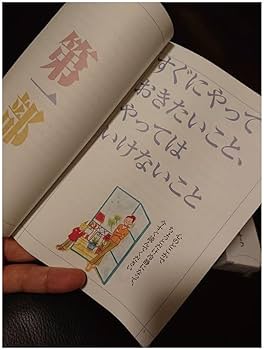 第一部
すぐにやって
おきたいこと、
やっては
いけないこと